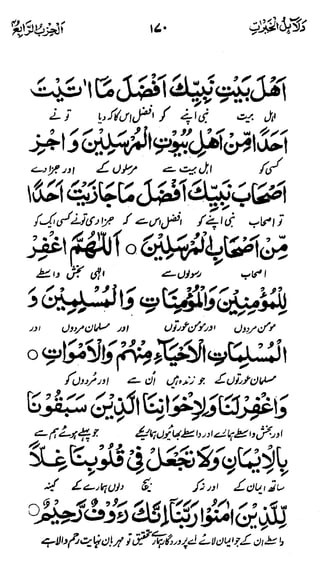 دلائل الخیرات ۱۷۰ الحزب الرابع
اَهْلَ بَيْتِ نَبِيِّكَ اَفْضَلَ مَا اٰتَيْتَ
اہل بیت نبی اپنے کو افضل اس کا کہ دیا تو نے
اَحَدًا مِّنْ اَهْلِ بُيُوْتِ الْمُرْسَلِيْنَ وَاجْزِ
کسی کو اہل بیت سے مرسلوں کے اور جزا دے
اَصْحَابَ نَبِيِّكَ اَفْضَلَ مَا جَازَيْتَ اَحَدًا
تو اصحاب نبی اپنے کو افضل اس سے کہ جزا دی تو نے کسی ایک کو
مِّنْ اَصْحَابِ الْمُرْسَلِيْنَ ○ اَللّٰهُمَّ اغْفِرْ
اصحاب رسولوں سے الٰہی بخش واسطے
لِلْمُؤْمِنِيْنَ وَالْمُؤْمِنَاتِ وَالْمُسْلِمِيْنَ وَ
مومن مردوں اور مومن عورتوں اور مسلمان مردوں اور
الْمُسْلِمَاتِ الْاَحْيَآءِ مِنْهُمْ وَالْاَمْوَاتِ ○
مسلمان عورتوں کے جو زندہ ہیں اُن سے اور مُردوں کو
وَاغْفِرْ لَنَا وَلِاِخْوَانِنَا الَّذِيْنَ سَبَقُوْنَا
اور بخش واسطے ہمارے اور واسطے بھائیوں ہمارے کے جو پہلے ہوئے ہم سے
بِالْاِيْمَانِ وَلَا تَجْعَلْ فِيْ قُلُوْبِنَا غِلًّا
ساتھ ایمان کے اور نہ کر بیچ دلوں ہمارے کے کینہ
لِّلَّذِيْنَ اٰمَنُوْا رَبَّنَآ اِنَّكَ رَءُوْفٌ رَّحِيْمٌ ○
واسطے ان کے جو ایمان لائے اے پروردگار ہمارے تحقیق تو مہربان نہایت رحم والا ہے